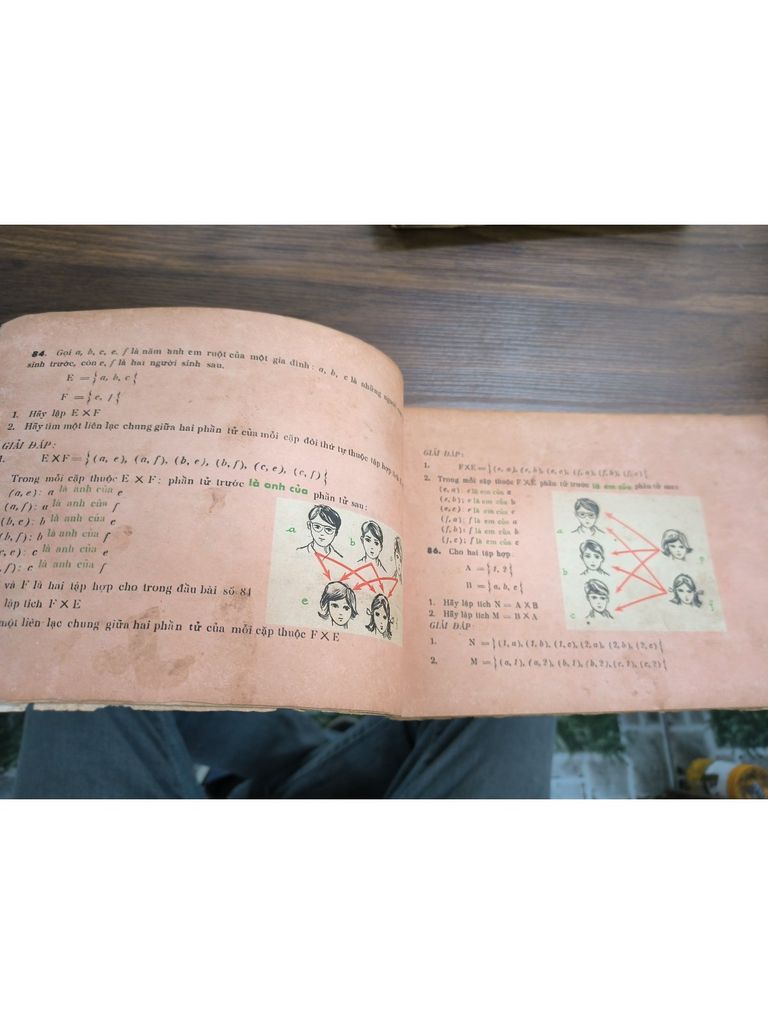 84. Gọi a, b, c, e, f là năm anh em ruột của một gia đình : a, b, c là những người
sinh trước, còn e, f là hai người sinh sau.
E = { a, b, c {
F = { e, f {
1. Hãy lập E X F
2. Hãy tìm một liên lạc chung giữa hai phần tử của mỗi cặp đôi thứ tự thuộc tập hợp tích
GIẢI ĐÁP :
1. E X F = { (a, e), (a, f), (b, e), (b, f), (c, e), (c, f) {
Trong mỗi cặp thuộc E X F : phần tử trước là anh của phần tử sau :
(a, e) : a là anh của e
(a, f) : a là anh của f
(b, e) : b là anh của e
(b, f) : b là anh của f
c, e) : c là anh của e
, f) : c là anh của f
và F là hai tập hợp cho trong đầu bài số 84
lập tích F X E
một liên lạc chung giữa hai phần tử của mỗi cặp thuộc F X E
a
b
e
GIẢI ĐÁP :
1. F X E = { (e, a), (e, b), (e, c), (f, a), (f, b), (f, c) {
2. Trong mỗi cặp thuộc F X E phần tử trước là em của phần tử sau
(e, a) : e là em của a
(e, b) : e là em của b
(e, c) : e là em của c
(f, a) : f là em của a
(f, b) : f là em của b
(f, c) : f là em của c
86. Cho hai tập hợp :
A = { 1, 2 {
B = { a, b, c {
1. Hãy lập tích N = A X B
2. Hãy lập tích M = B X A
GIẢI ĐÁP :
1. N = { (1, a), (1, b), (1, c), (2, a), (2, b), (2, c) {
2. M = { (a, 1), (a, 2), (b, 1), (b, 2), (c, 1), (c, 2) {
a
b
c
f